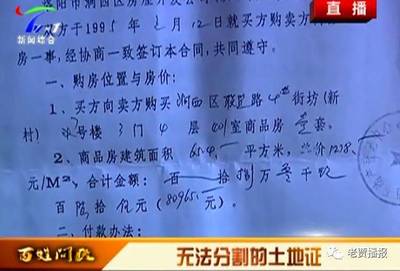 新闻综合
直播
阳市涧西区房屋开发公司
方于1995年 2月12日就买方购卖方
房一事,经协商一致签订本合同,共同遵守。
一、购房位置与房价:
1、买方向卖方购买涧西区联盟路 街坊(新
村) 号楼 3门 4 层 401室商品房 壹套。
2、商品房建筑面积 65.4 平方米, 价1238.
元/M²,合计金额: 百 拾捌万 零千玖
百陆拾伍元(80965. 元)。
二、付款办法:
百姓问政
无法分割的土地证
老贾播报